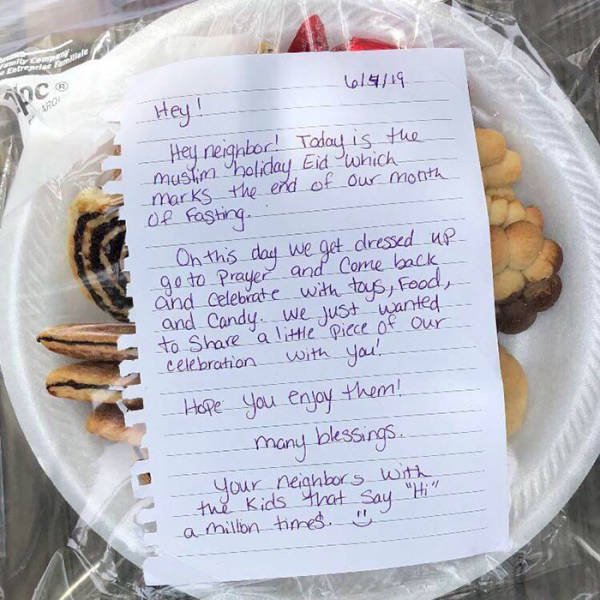 Family Company
Entreprise familiale
6/4/19
Hey!
Hey neighbor! Today is the
muslim holiday, Eid which
marks the end of our month
of fasting.
On this day we get dressed up
go to Prayer and Come back
and Celebrate with toys, Food,
and Candy. We just wanted
to Share a little piece of our
celebration with you!
Hope you enjoy them!
many blessings.
Your neighbors with
the kids that say "Hi"
a million times.